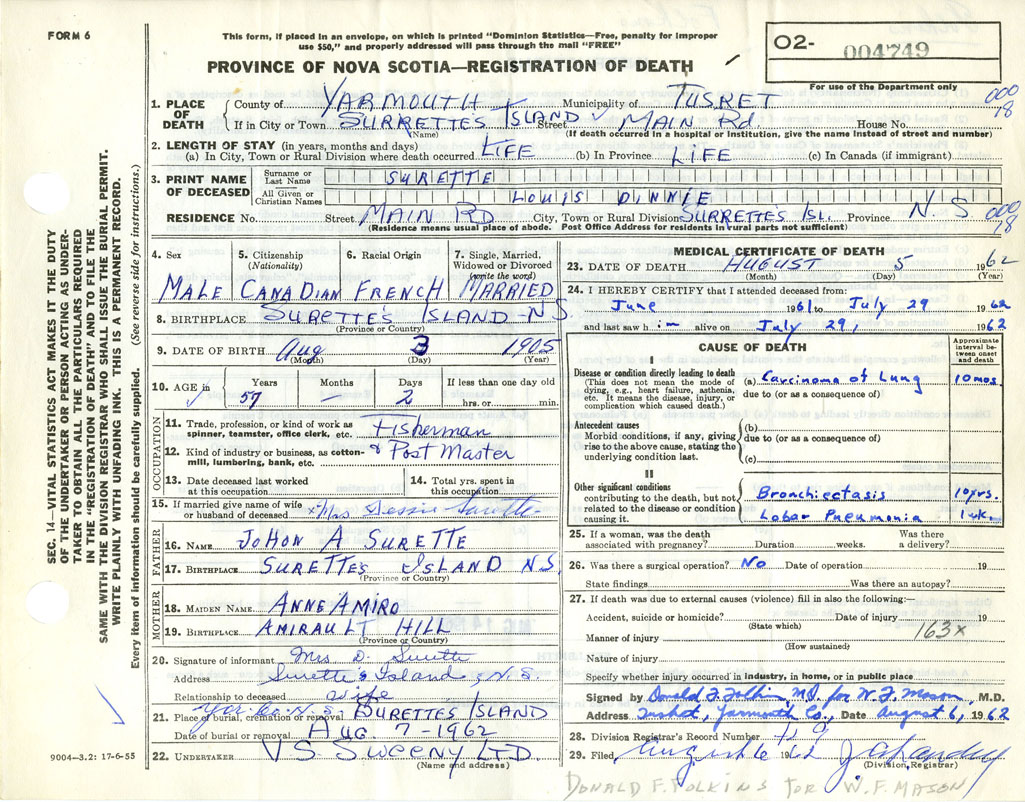 FORM 6
This form, if placed in an envelope, on which is printed "Dominion Statistics—Free, penalty for improper
use $50," and properly addressed will pass through the mail "FREE"
PROVINCE OF NOVA SCOTIA—REGISTRATION OF DEATH
02- 004749
For use of the Department only
000
78
1. PLACE OF DEATH
County of YARMOUTH Municipality of TUSKET
If in City or Town SURRETTES ISLAND Street MAIN Rd House No.
(Name) (If death occurred in a hospital or institution, give the name instead of street and number)
2. LENGTH OF STAY (in years, months and days)
(a) In City, Town or Rural Division where death occurred LIFE (b) In Province LIFE (c) In Canada (if immigrant)
3. PRINT NAME OF DECEASED
Surname or Last Name SURETTE
All Given or Christian Names LOUIS DINNIE
RESIDENCE No. Street MAIN RD City, Town or Rural Division SURRETTE'S ISL. Province N.S
000
78
(Residence means usual place of abode. Post Office Address for residents in rural parts not sufficient)
4. Sex MALE
5. Citizenship (Nationality) CANADIAN
6. Racial Origin FRENCH
7. Single, Married, Widowed or Divorced (write the word) MARRIED
8. BIRTHPLACE SURETTE'S ISLAND-N.S.
(Province or Country)
9. DATE OF BIRTH Aug 3 1905
(Month) (Day) (Year)
10. AGE in Years 57 Months — Days 2 If less than one day old hrs. or min.
OCCUPATION
11. Trade, profession, or kind of work as spinner, teamster, office clerk, etc. Fisherman
12. Kind of industry or business, as cotton-mill, lumbering, bank, etc. & Post Master
13. Date deceased last worked at this occupation
14. Total yrs. spent in this occupation
15. If married give name of wife or husband of deceased x Mrs Surette
FATHER
16. NAME JOHON A SURETTE
17. BIRTHPLACE SURETTES ISLAND N.S.
(Province or Country)
MOTHER
18. MAIDEN NAME ANNE AMIRO
19. BIRTHPLACE AMIRAULT HILL
(Province or Country)
20. Signature of informant Mrs D. Surette
Address Surette's Island, N.S.
Relationship to deceased wife
Yar. Co. N.S.
21. Place of burial, cremation or removal SURETTES ISLAND
Date of burial or removal Aug 7-1962
22. UNDERTAKER V.S. SWEENY LTD.
(Name and address)
9004—3.2: 17-6-55
SEC. 14—VITAL STATISTICS ACT MAKES IT THE DUTY
OF THE UNDERTAKER OR PERSON ACTING AS UNDER-
TAKER TO OBTAIN ALL THE PARTICULARS REQUIRED
IN THE "REGISTRATION OF DEATH" AND TO FILE THE
SAME WITH THE DIVISION REGISTRAR WHO SHALL ISSUE THE BURIAL PERMIT.
WRITE PLAINLY WITH UNFADING INK. THIS IS A PERMANENT RECORD.
Every item of information should be carefully supplied. (See reverse side for instructions.)
MEDICAL CERTIFICATE OF DEATH
23. DATE OF DEATH AUGUST 5 1962
(Month) (Day) (Year)
24. I HEREBY CERTIFY that I attended deceased from:
June 1961 to July 29 1962
and last saw him alive on July 29, 1962
CAUSE OF DEATH
Approximate interval between onset and death
I
Disease or condition directly leading to death
(This does not mean the mode of dying, e.g., heart failure, asthenia, etc. It means the disease, injury, or complication which caused death.)
(a) Carcinoma of Lung 10 mos.
due to (or as a consequence of)
Antecedent causes
Morbid conditions, if any, giving rise to the above cause, stating the underlying condition last.
(b)
due to (or as a consequence of)
(c)
II
Other significant conditions
contributing to the death, but not related to the disease or condition causing it.
Bronchiectasis 10 yrs.
Lobar Pneumonia 1 wk.
25. If a woman, was the death associated with pregnancy? Duration weeks. Was there a delivery?
26. Was there a surgical operation? No Date of operation 19
State findings Was there an autopsy?
27. If death was due to external causes (violence) fill in also the following:—
Accident, suicide or homicide? Date of injury 19
(State which)
163x
Manner of injury
(How sustained)
Nature of injury
Specify whether injury occurred in industry, in home, or in public place
Signed by Donald F. Folkins, M.D. for W. F. Mason, M.D.
Address Tusket, Yarmouth Co., Date August 6, 1962
28. Division Registrar's Record Number
29. Filed August 6 1962
(Division Registrar)
DONALD F. FOLKINS for W. F. MASON